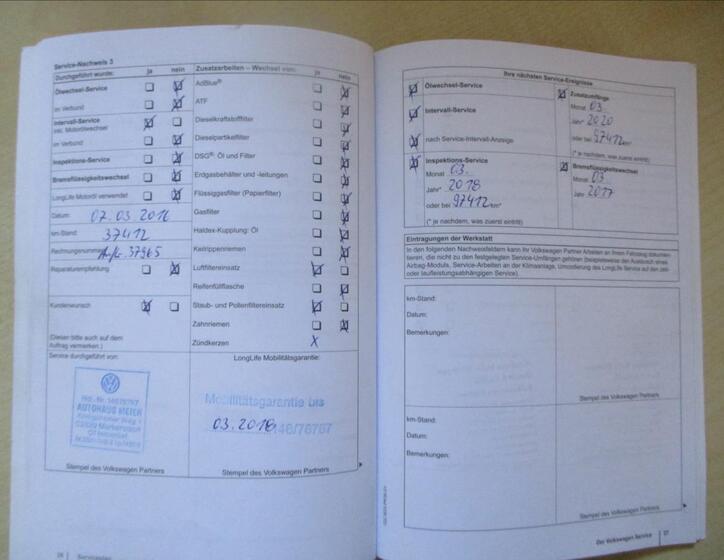 Service-Nachweis 3
Durchgeführt wurde: ja nein
Ölwechsel-Service
im Verbund
Intervall-Service
inkl. Motorölwechsel
im Verbund
Inspektions-Service
Bremsflüssigkeitswechsel
LongLife Motoröl verwendet
Datum 07.03 2016
km-Stand: 37412
Rechnungsnummer
Reparaturempfehlung
Kundenwunsch
(Diesen bitte auch auf dem
Auftrag vermerken.)
Service durchgeführt von:
AUTOHAUS MEIER
Stempel des Volkswagen Partners
Zusatzarbeiten – Wechsel von: ja nein
AdBlue®
ATF
Dieselkraftstofffilter
Dieselpartikelfilter
DSG®: Öl und Filter
Erdgasbehälter und -leitungen
Flüssiggasfilter (Papierfilter)
Gasfilter
Haldex-Kupplung: Öl
Keilrippenriemen
Luftfiltereinsatz
Reifenfüllflasche
Staub- und Pollenfiltereinsatz
Zahnriemen
Zündkerzen X
LongLife Mobilitätsgarantie:
Mobilitätsgarantie bis
03.2018
Stempel des Volkswagen Partners
Ihre nächsten Service-Ereignisse
Ölwechsel-Service
Intervall-Service
nach Service-Intervall-Anzeige
Zusatzumfänge
Monat 03.
Jahr* 2020
oder bei 97412 km*
(* je nachdem, was zuerst eintritt)
Inspektions-Service
Monat 03.
Jahr* 2018
oder bei 97412 km*
(* je nachdem, was zuerst eintritt)
Bremsflüssigkeitswechsel
Monat 03
Jahr 2017
Eintragungen der Werkstatt
In den folgenden Nachweisfeldern kann Ihr Volkswagen Partner Arbeiten an Ihrem Fahrzeug dokumen-
tieren, die nicht zu den festgelegten Service-Umfängen gehören (beispielsweise den Austausch eines
Airbag-Moduls, Service-Arbeiten an der Klimaanlage, Umcodierung des LongLife Service auf den zeit-
oder laufleistungsabhängigen Service).
km-Stand:
Datum:
Bemerkungen:
Stempel des Volkswagen Partners
km-Stand:
Datum:
Bemerkungen:
Stempel des Volkswagen Partners
Der Volkswagen Service
Serviceplan